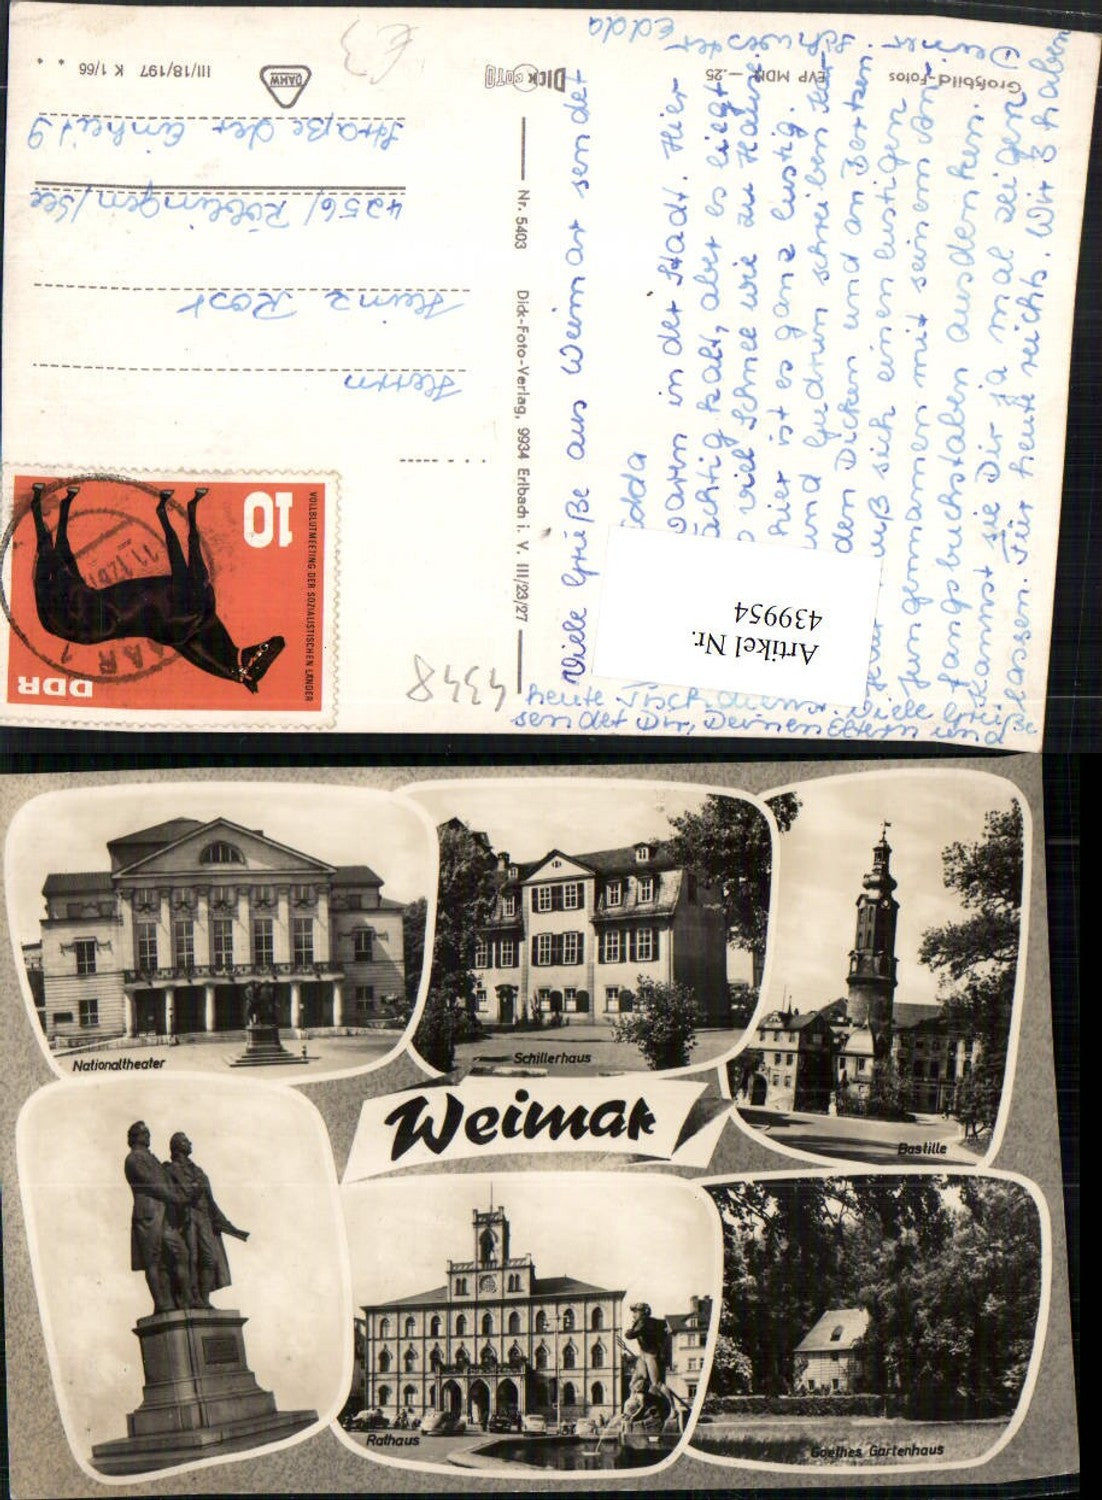 Viele Grüße aus Weimar sendet
Edda
waren in der Stadt. Hier
kalt, aber es liegt
viel Schnee wie zu Hause.
hier ist es ganz lustig.
und Gudrun schreiben Kur
den Dicken und an
muß sich einen lustigen
Jungennamen mit seinem An-
fangsbuchstaben ausdenken.
Kannst sie Dir ja mal zeigen
lassen. Für heute reichts. Wir 3 haben
heute Tischdienst. Viele Grüße
sendet Dir, Deinen Eltern und
Deiner
Schwester
Edda
Großbild-Fotos
EVP MDN —.25
DICK FOTO
DAHW
III/18/197 K 1/66
Nr. 5403 Dick-Foto-Verlag, 9934 Erlbach i. V. III/23/27
Herrn
Heinz Rost
4256/ Röblingen/See
Straße der Einheit 9
DDR
10
VOLLBLUTMEETING DER SOZIALISTISCHEN LÄNDER
4348
€3
Artikel Nr.
439954
Nationaltheater
Schillerhaus
Bastille
Weimar
Rathaus
Goethes Gartenhaus